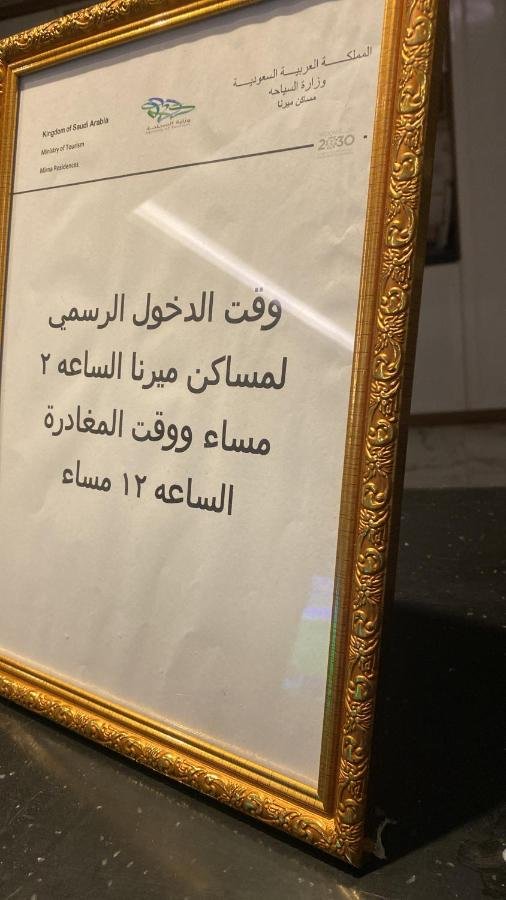 المملكة العربية السعودية
وزارة السياحه
مساكن ميرنا
Kingdom of Saudi Arabia
Ministry of Tourism
Mirna Residences
وزارة السياحة
2030
وقت الدخول الرسمي
لمساكن ميرنا الساعه ٢
مساء ووقت المغادرة
الساعه ١٢ مساء